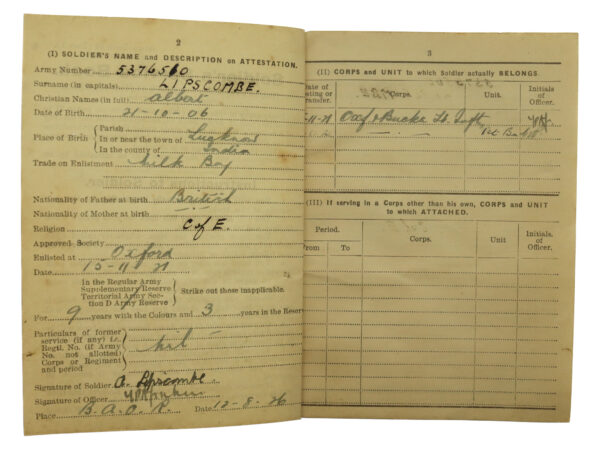 2
(I) SOLDIER'S NAME and DESCRIPTION on ATTESTATION.
Army Number 5376560
Surname (in capitals) LIPSCOMBE.
Christian Names (in full) Albert
Date of Birth 21-10-06
Place of Birth { Parish
In or near the town of Lucknow
In the county of India
Trade on Enlistment Milk Boy
Nationality of Father at birth British
Nationality of Mother at birth
Religion C of E.
Approved Society
Enlisted at Oxford
Date 15-11-21
In the Regular Army
Supplementary Reserve
Territorial Army Section D Army Reserve } Strike out those inapplicable.
For 9 years with the Colours and 3 years in the Reserve
Particulars of former
service (if any) i.e.
Regtl. No. (if Army
No. not allotted)
Corps or Regiment
and period { nil
Signature of Soldier A. Lipscombe
Signature of Officer
Place B.A.O.R. Date 12-8-26
3
(II) CORPS and UNIT to which Soldier actually BELONGS.
Date of
Posting or
Transfer. Corps. Unit. Initials
of
Officer.
-11-21 Oxf & Bucks Lt Infty
1st Bn
(III) If serving in a Corps other than his own, CORPS and UNIT
to which ATTACHED.
Period. Corps. Unit Initials.
of
Officer.
From To